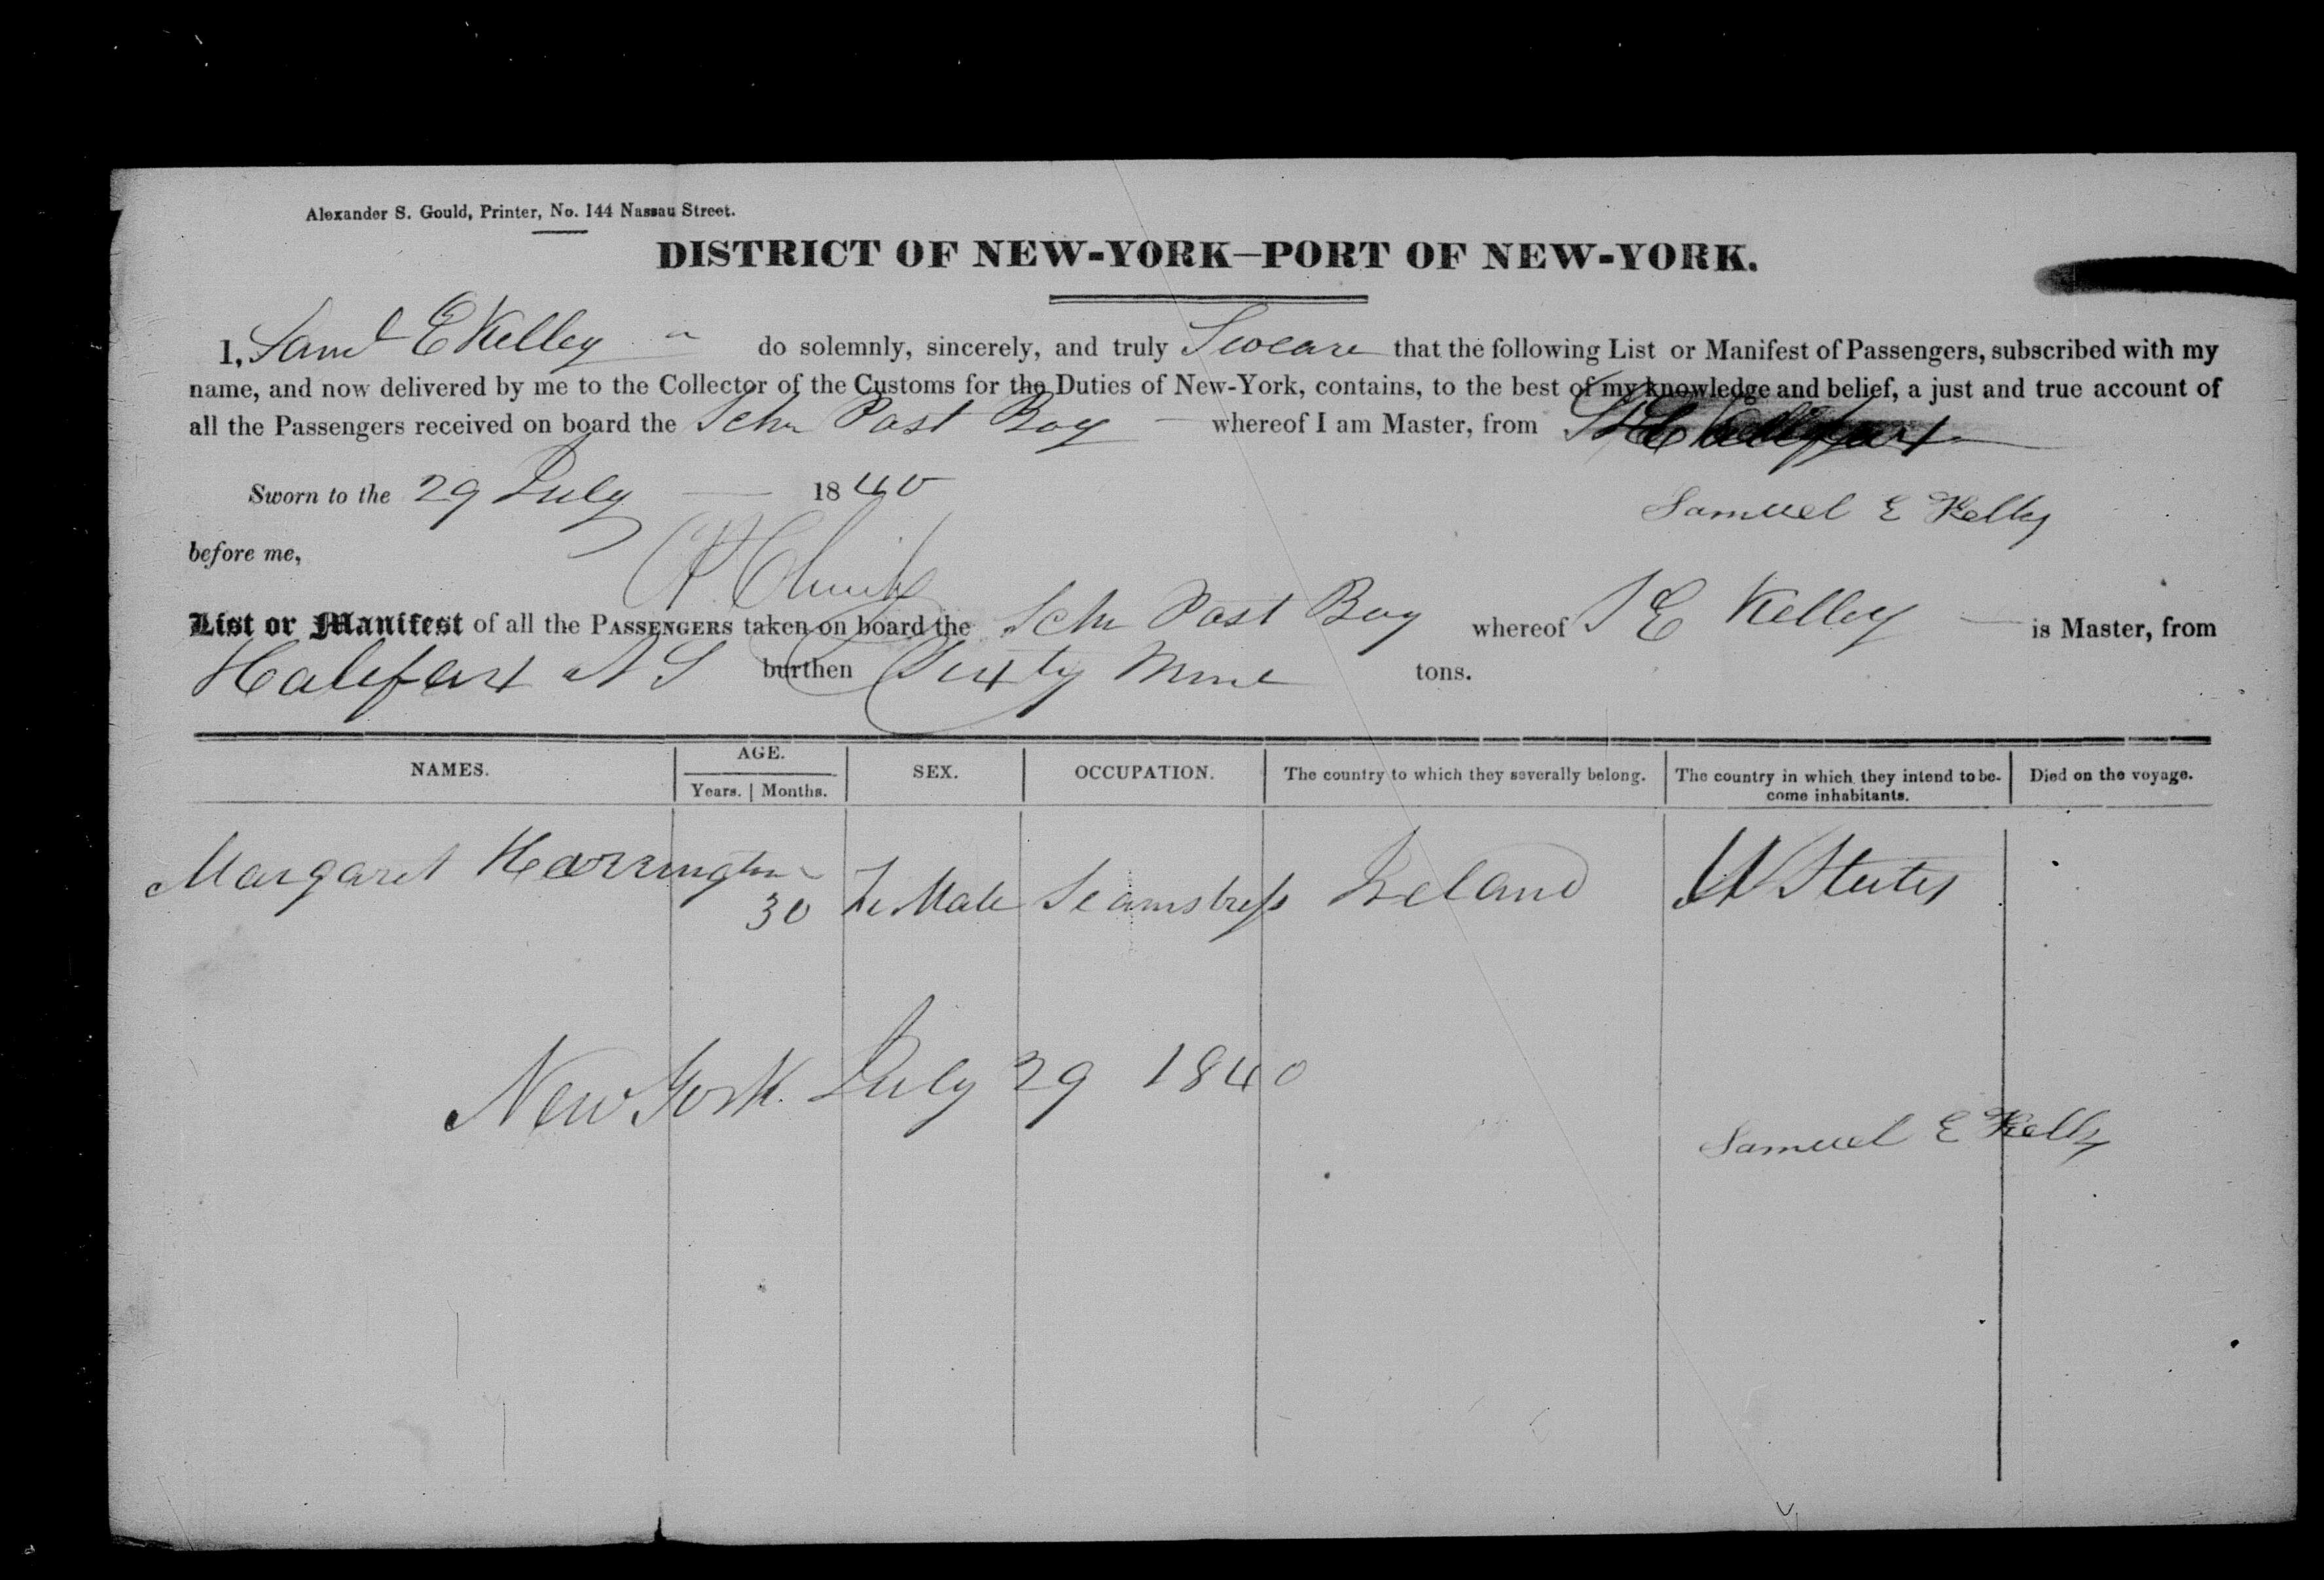 Alexander S. Gould, Printer, No. 144 Nassau Street.
DISTRICT OF NEW-YORK—PORT OF NEW-YORK.
I, Saml E Kelley do solemnly, sincerely, and truly Sweare that the following List or Manifest of Passengers, subscribed with my
name, and now delivered by me to the Collector of the Customs for the Duties of New-York, contains, to the best of my knowledge and belief, a just and true account of
all the Passengers received on board the Schr Post Boy whereof I am Master, from Halifax
Sworn to the 29 July 1840
Samuel E Kelly
before me,
List or Manifest of all the PASSENGERS taken on board the Schr Post Boy whereof S E Kelley is Master, from
Halifax N S burthen Sixty Nine tons.
NAMES. AGE. Years. Months. SEX. OCCUPATION. The country to which they severally belong. The country in which they intend to become inhabitants. Died on the voyage.
Margaret Harrington 30 FeMale Seamstress Ireland U States
New York July 29 1840
Samuel E Kelly